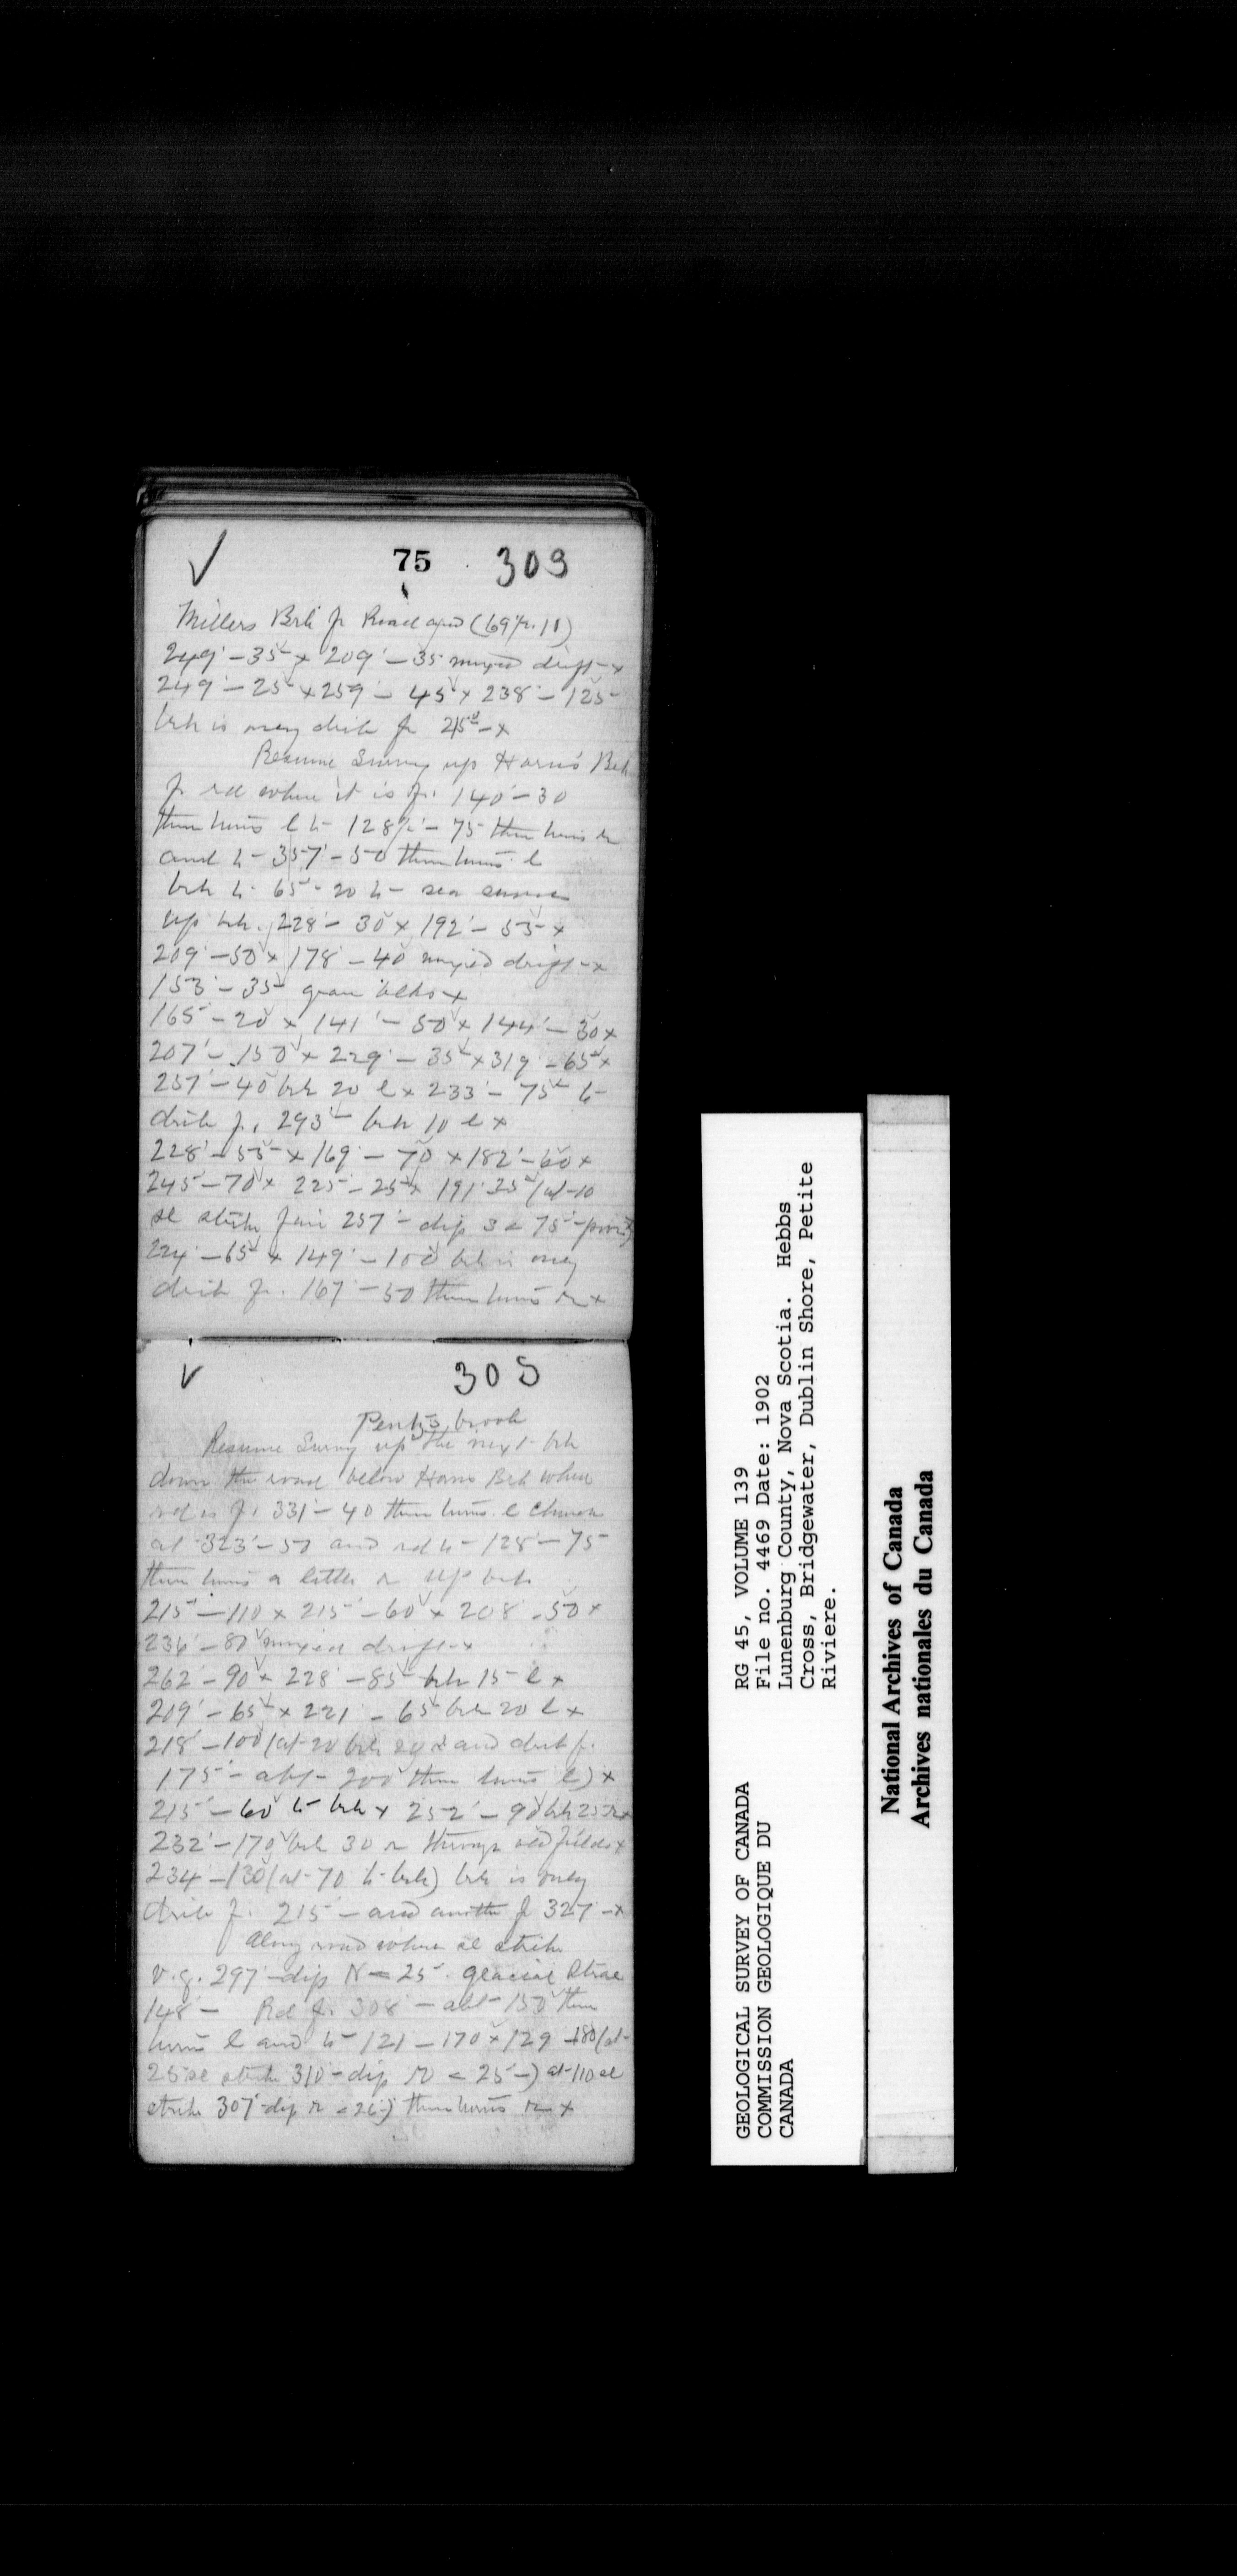 ✓ 75 303
Millers Brk fr Road (69
249 - 35 x 209 - 35 mixed drift x
249 - 25 x 259 - 45 x 238 - 125
brk is only fr 215 x
Resume Survey up Harris Brk
fr rd where it is fr. 140 - 30
then turns l to 128 - 75 then turns r
and to 357 - 50 then turns l
brk to 65 - 20 to
up brk. 228 - 30 x 192 - 55 x
209 - 50 x 178 - 40 mixed drift x
153 - 35 blks x
165 - 20 x 141 - 50 x 144 - 30 x
207 - 150 x 229 - 35 x 319 - 65 x
257 - 40 brk 20 l x 233 - 75 to
fr. 293 brk 10 l x
228 - 55 x 169 - 70 x 182 - 60 x
245 - 70 x 225 - 25 x 191 35 (at 10
sl strike 257 - dip S < 75
224 - 65 x 149 - 100 brk is only
fr. 167 - 50 then turns r x
✓ 305
Pentz's brook
Resume Survey up the next brk
down the road below Harris Brk where
rd is fr. 331 - 40 then turns l Church
at 323 - 50 and rd to 128 - 75
then turns a little r up brk
215 - 110 x 215 - 60 x 208 - 50 x
236 - 80 mixed drift x
262 - 90 x 228 - 85 brk 15 l x
209 - 65 x 221 - 65 brk 20 l x
218 - 100 (at 20 brk and fr.
175 - abt 200 then turns l) x
215 - 60 to brk x 252 - 90 brk 25 r x
232 - 170 brk 30 r through old fields x
234 - 130 (at 70 to brk) brk is only
fr. 215 - and another fr 327 x
Along road where sl strike
v.g. 297 - dip N < 25 glacial striae
148 - Rd fr. 308 - abt 150 then
turns l and to 121 - 170 x 129 - 180 (at
25 sl strike 310 - dip N < 25) at 110 sl
strike 307 dip N < 26) then turns r x
RG 45, VOLUME 139
File no. 4469 Date: 1902
Lunenburg County, Nova Scotia. Hebbs
Cross, Bridgewater, Dublin Shore, Petite
Riviere.
GEOLOGICAL SURVEY OF CANADA
COMMISSION GEOLOGIQUE DU
CANADA
National Archives of Canada
Archives nationales du Canada